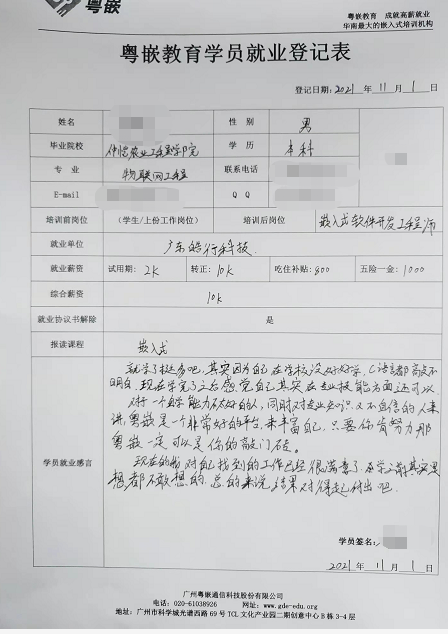 粤嵌
粤嵌教育 成就高薪就业
华南最大的嵌入式培训机构
粤嵌教育学员就业登记表
登记日期：2021 年 11 月 1 日
姓名 性别 男
毕业院校 仲恺农业工程学院 学历 本科
专业 物联网工程 联系电话
E-mail Q Q
培训前岗位 （学生/上份工作岗位） 培训后岗位 嵌入式软件开发工程师
就业单位 广东皓行科技
就业薪资 试用期：2K 转正：10k 吃住补贴：800 五险一金：1000
综合薪资 10k
就业协议书解除 是
报读课程 嵌入式
学员就业感言
就学了挺多吧，其实因为自己在学校没好好学，C语言都搞
不明白，现在学完了之后感觉自己其实在专业技能方面还可以
对于一个自学能力不太好的人，同时对专业知识又不自信的人来
讲，粤嵌是一个非常好的平台，来丰富自己，只要你肯努力那
粤嵌一定可以是你的敲门砖。
现在的我对自己找到的工作已经很满意了，在学之前其实是
想都不敢想的，总的来说，结果对得起付出吧
学员签名：
2021 年 11 月 1 日
广州粤嵌通信科技股份有限公司
电话：020-61038926 网址：www.gde-edu.org
地址：广州市科学城光谱西路 69 号 TCL 文化产业园二期创意中心 B 栋 3-4 层